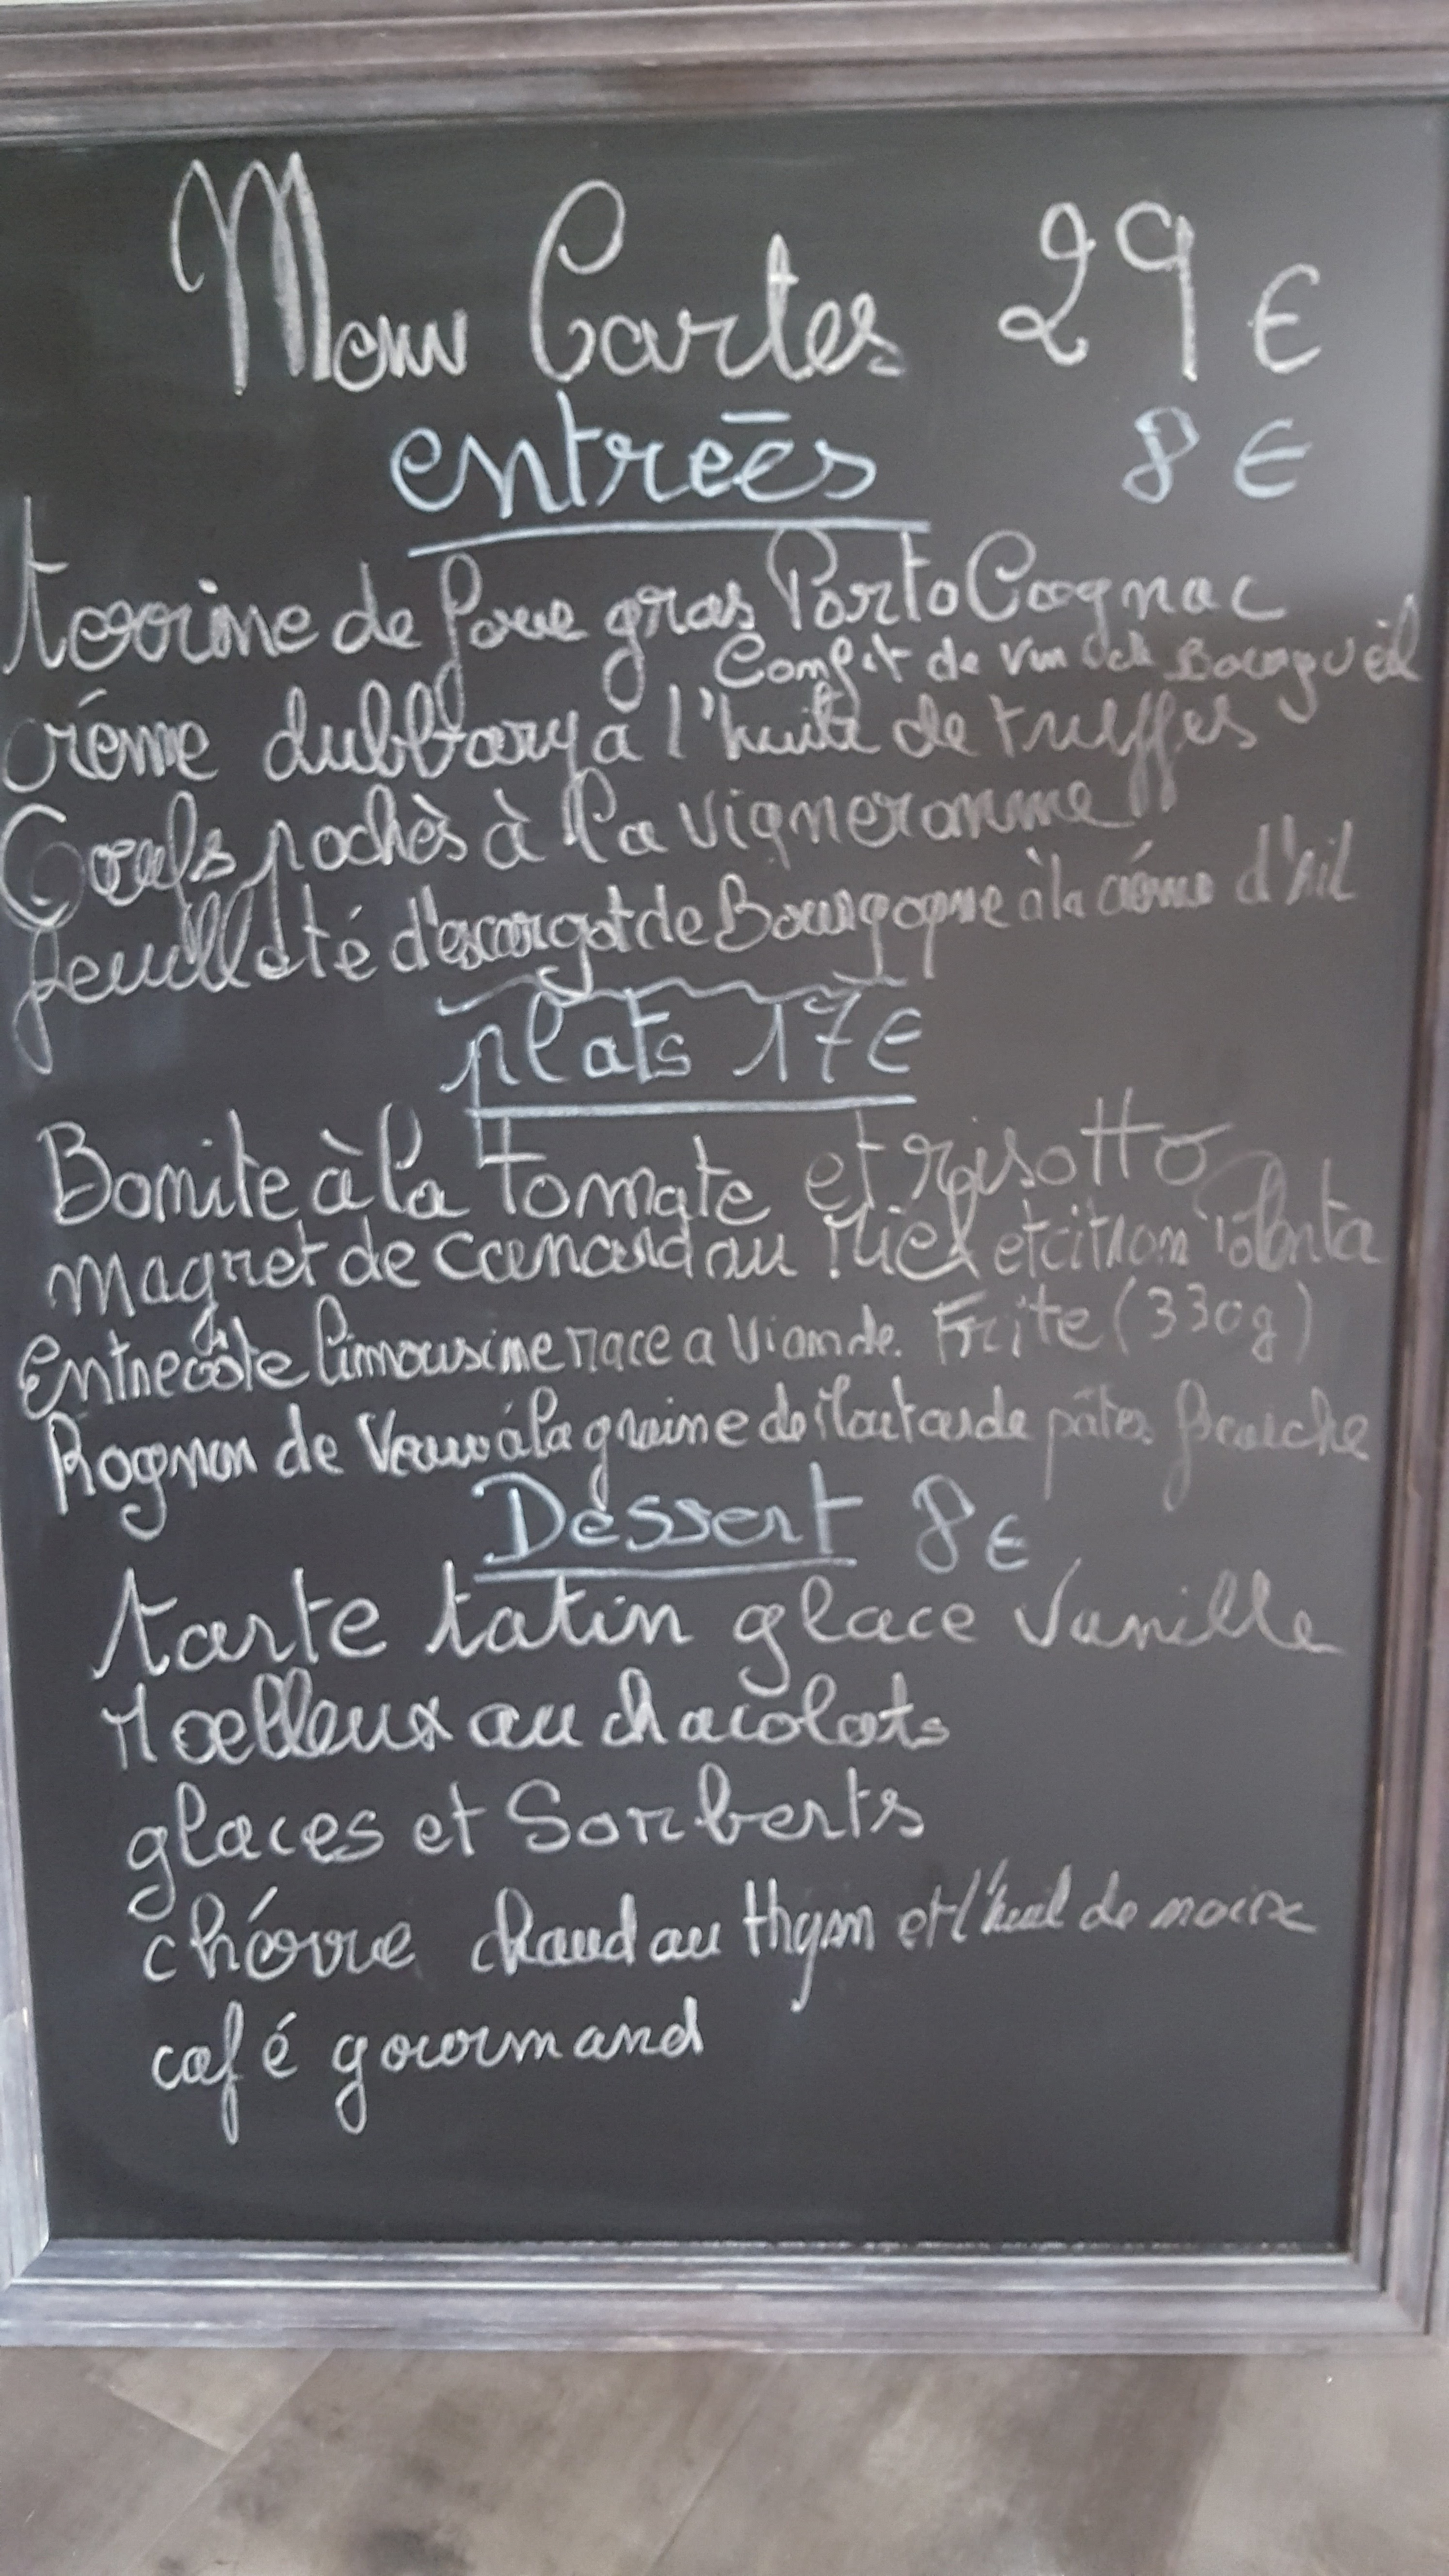 Menu Cartes 29 €
entrées 8 €
terrine de foie gras Porto Cognac
Confit de Vin de Bourgueil
créme dubbary a l'huile de truffes
Oeufs pochès à la vigneronne
feuilleté d'escargot de Bourgogne à la créme d'Ail
plats 17 €
Bonite à la tomate et risotto
magret de canard au Miel et citron Polenta
Entrecôte limousine race a Viande. Frite (330g)
Rognon de Veau à la graine de Moutarde pâtes fraiche
Déssert 8 €
tarte tatin glace Vanille
Moelleux au chacolats
glaces et Sorberts
chévre chaud au thym et l'huil de noix
café gourmand